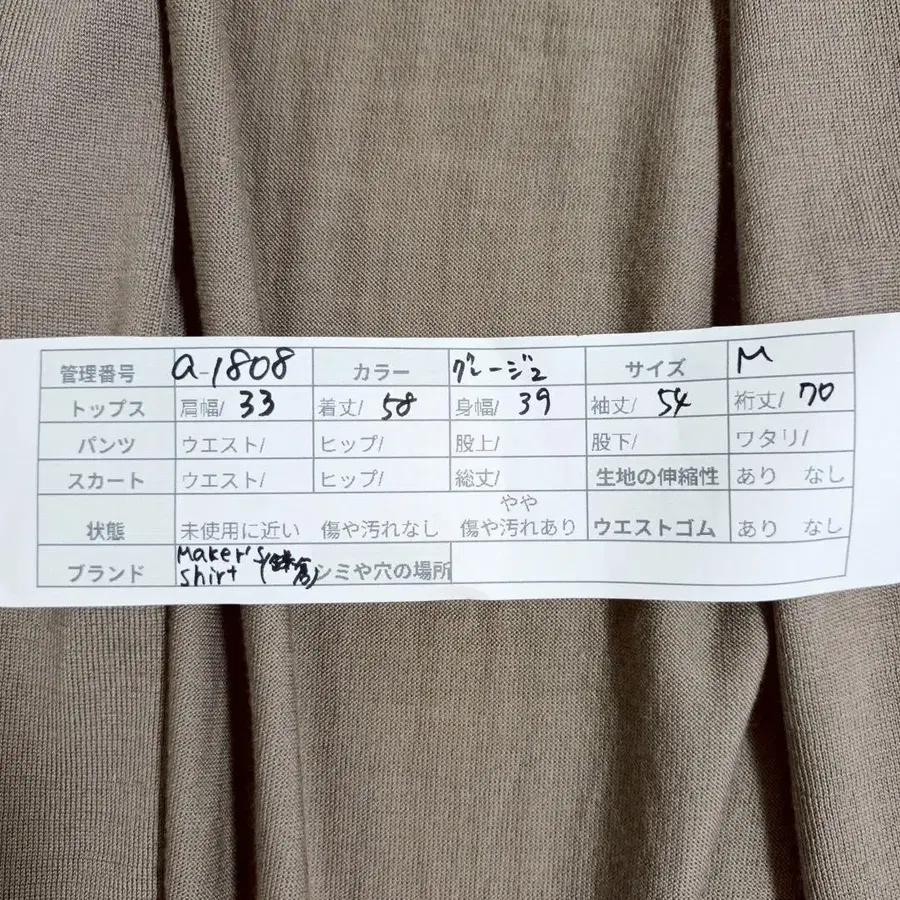 管理番号 a-1808 カラー グレージュ サイズ M
トップス 肩幅/ 33 着丈/ 58 身幅/ 39 袖丈/ 54 裄丈/ 70
パンツ ウエスト/ ヒップ/ 股上/ 股下/ ワタリ/
スカート ウエスト/ ヒップ/ 総丈/ 生地の伸縮性 あり なし
状態 未使用に近い 傷や汚れなし やや
傷や汚れあり ウエストゴム あり なし
ブランド Maker's
shirt (鎌倉) シミや穴の場所